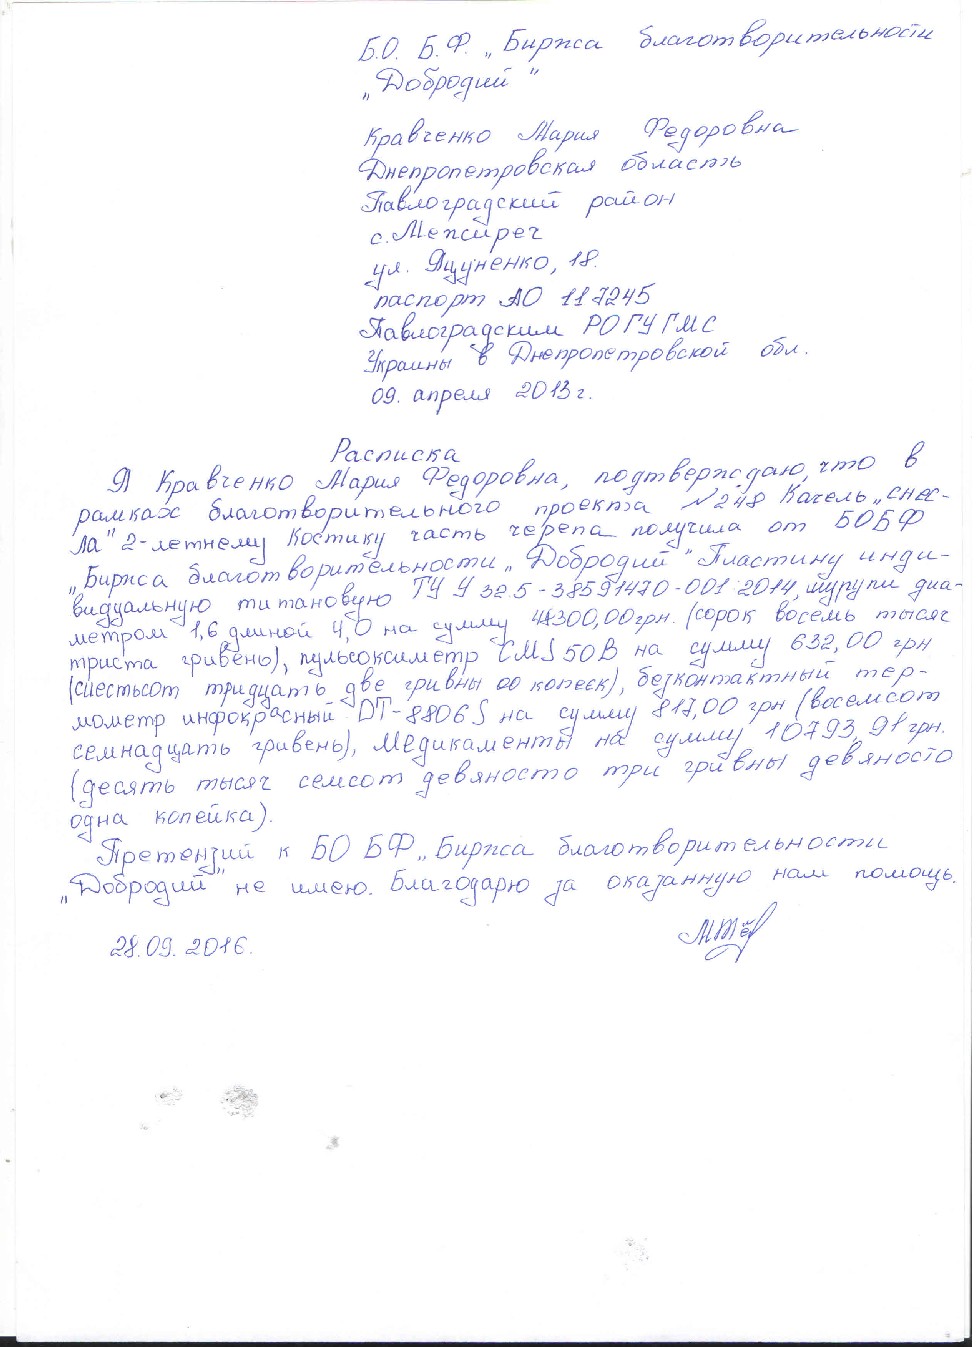 Б.О. Б.Ф. „Биржа благотворительности
„Добродий"
Кравченко Мария Федоровна
Днепропетровская область
Павлоградский район
с. Межиреч
ул. Яцуненко, 18.
паспорт АО 117245
Павлоградским РОГУГМС
Украины в Днепропетровской обл.
09. апреля 2013 г.
Расписка
Я Кравченко Мария Федоровна, подтверждаю, что в
рамках благотворительного проекта №248 Качель „снес-
ла" 2-летнему Костику часть черепа получила от БОБФ
„Биржа благотворительности „Добродий" Пластину инди-
видуальную титановую ТУ У 32.5-38591470-001:2014, шурупи диа-
метром 1,6 длиной 4,0 на сумму 48300,00грн. (сорок восемь тысяч
триста гривень), пульсоксиметр CMS 50B на сумму 632,00 грн
(шестьсот тридцать две гривны 00 копеек), безконтактный тер-
мометр инфокрасный DT-8806S на сумму 817,00 грн (восемсот
семнадцать гривень), медикаменты на сумму 10793,91грн.
(десять тысяч семсот девяносто три гривны девяносто
одна копейка).
Претензий к БО БФ „Биржа благотворительности
„Добродий" не имею. Благодарю за оказанную нам помощь.
28.09. 2016.